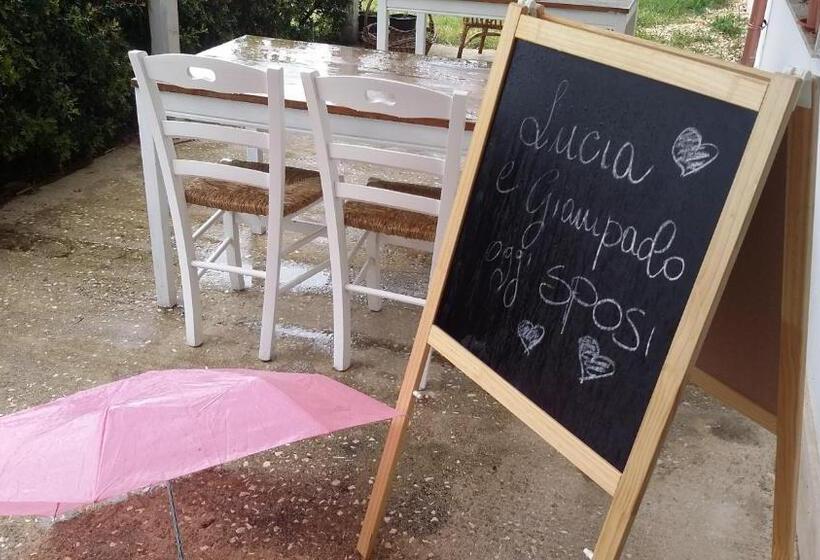 Lucia
e Giampaolo
oggi SPOSI